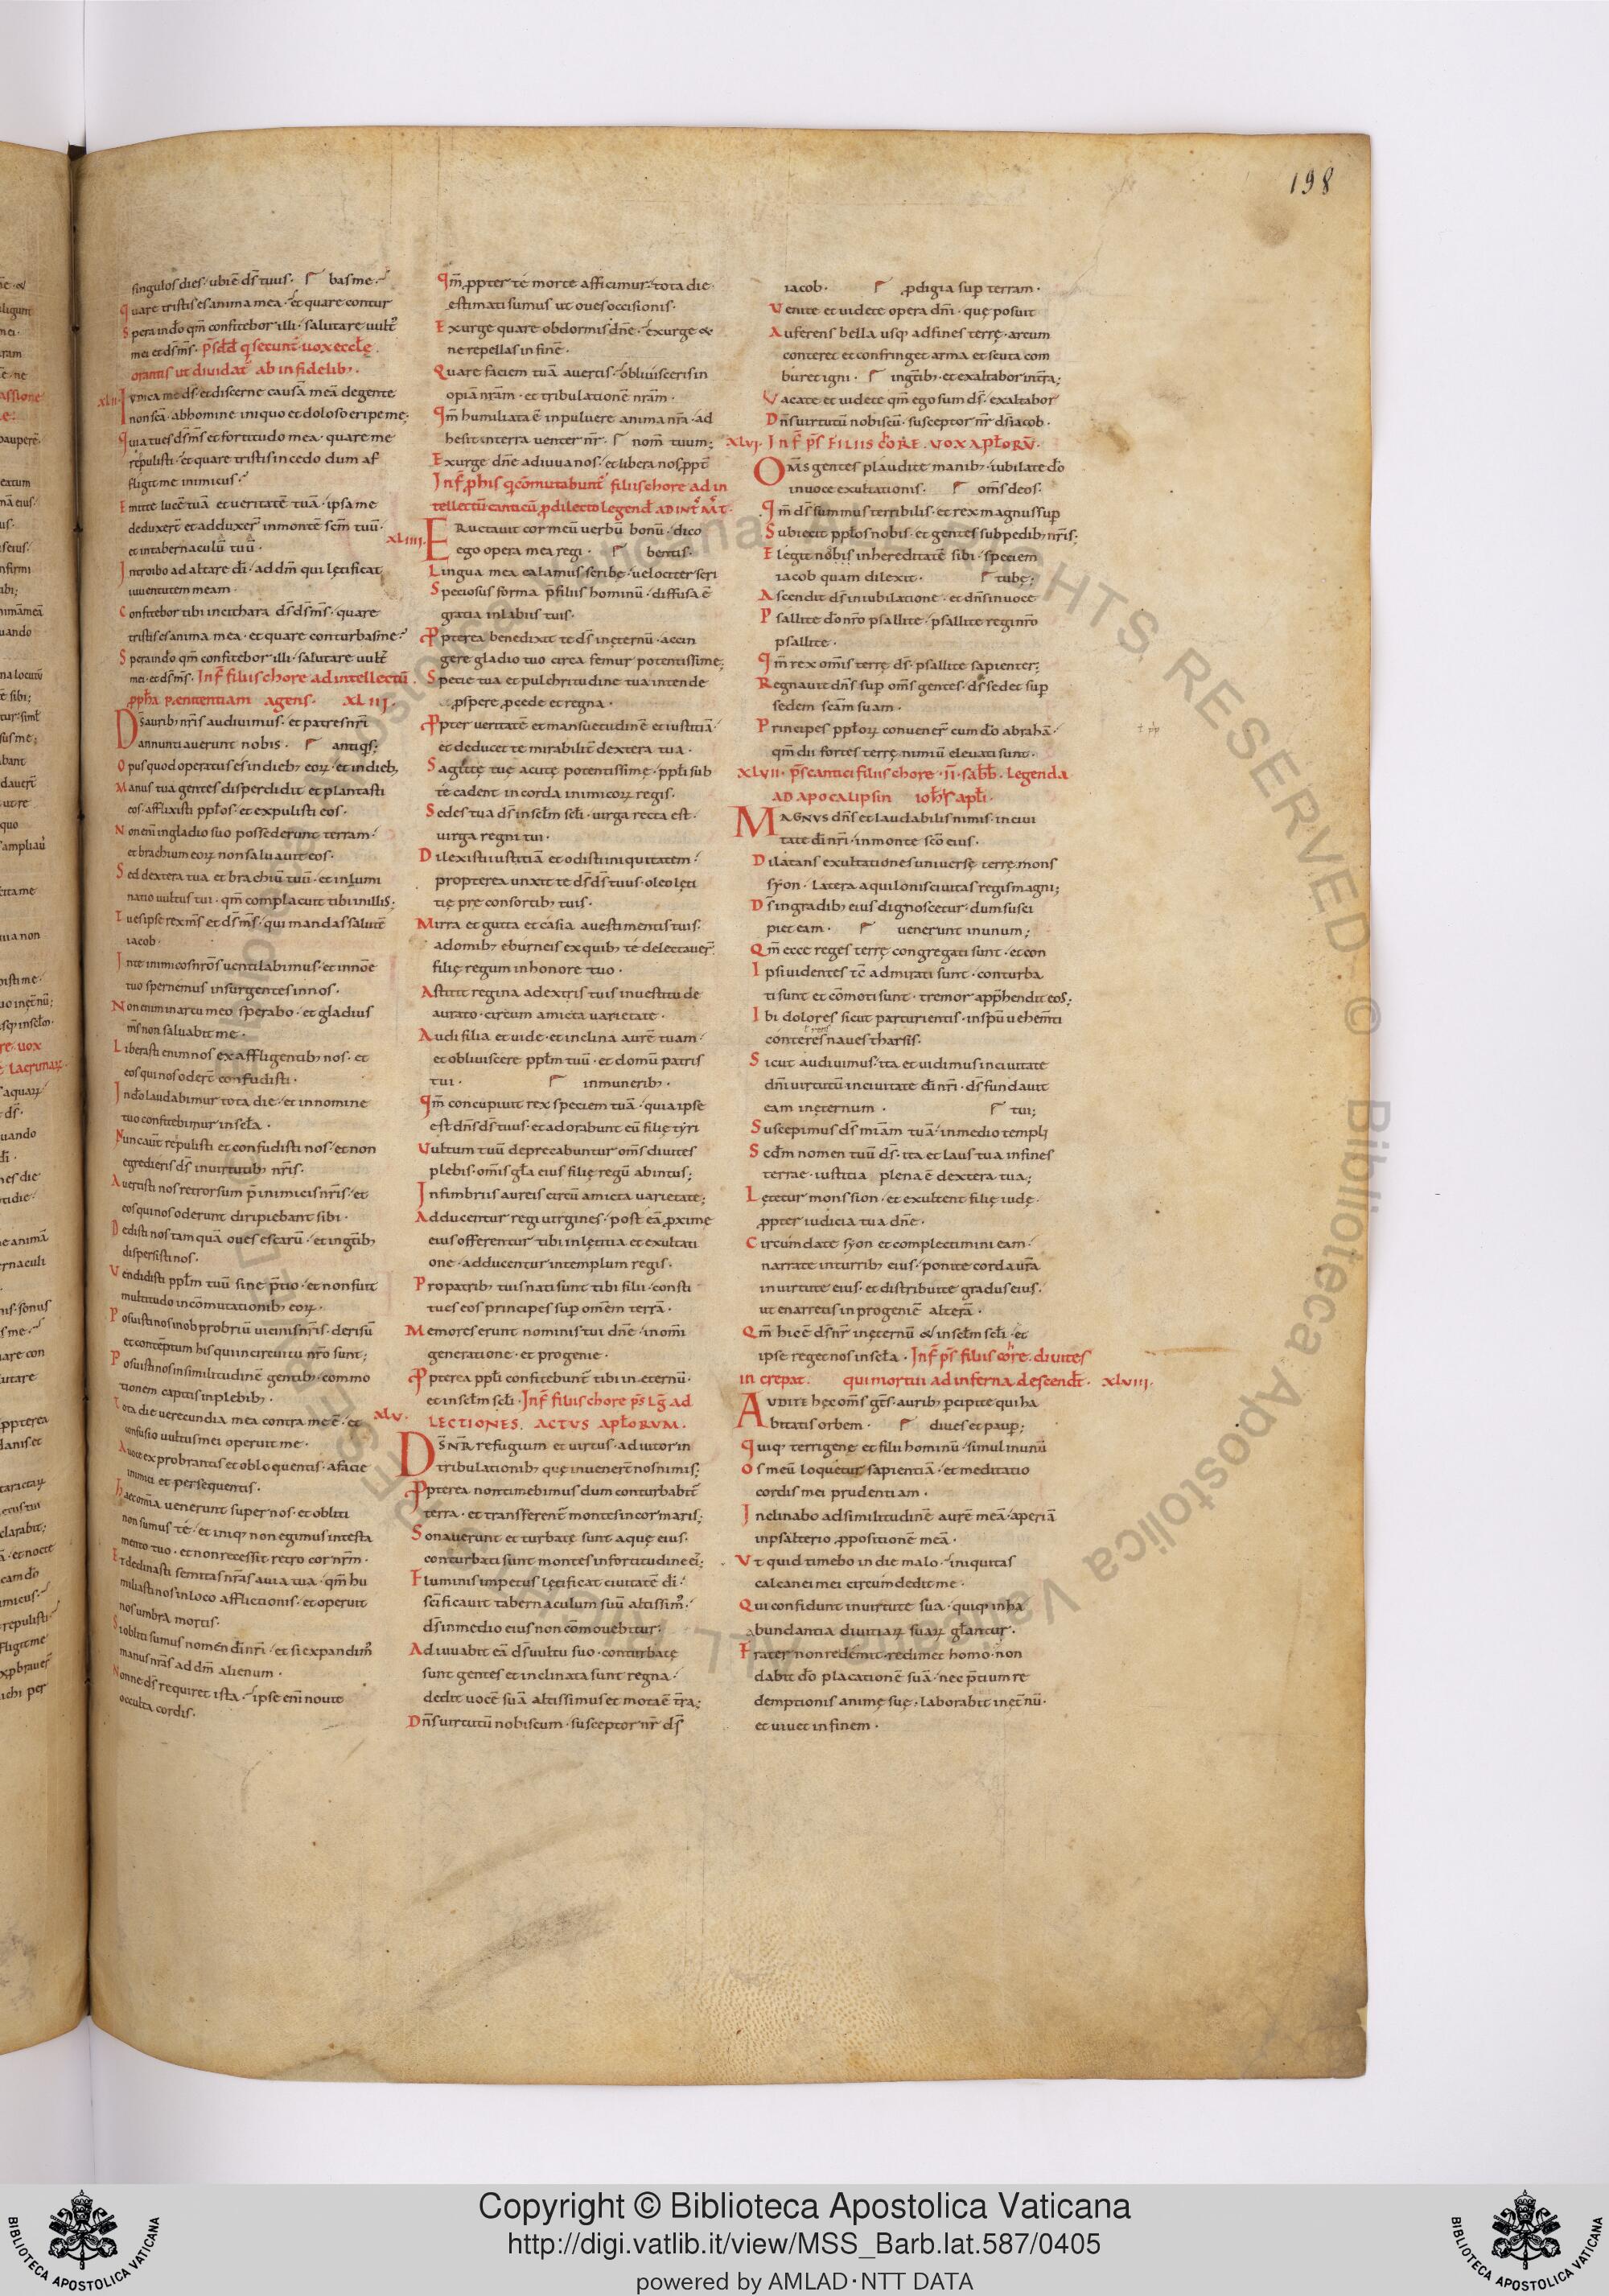 198
singulos dies ubi ē d̄s tuus · Γ bas me ·
Quare tristis es anima mea · et quare contur
Spera in dō qm̄ confitebor illi · salutare uult᷒
mei et d̄s m̄s ·
orantis ut diuidat᷒ ab infidelib; ·
XLII · Iudica me d̄s · et discerne causā meā de gente
non scā · ab homine iniquo et doloso eripe me;
Quia tu es d̄s m̄s et fortitudo mea · quare me
repulisti · et quare tristis incedo dum af
fligit me inimicus ·
Emitte lucē tuā et ueritatē tuā · ipsa me
deduxert̄ et adduxer̄ in montē scm̄ tuū ·
et in tabernaculū tuū ·
Introibo ad altare dī · ad dm̄ qui lętificat
iuuentutem meam ·
Confitebor tibi in cithara d̄s d̄s m̄s · quare
tristis es anima mea · et quare conturbas me ·
Spera in dō qm̄ confitebor illi · salutare uult᷒
mei · et d̄s m̄s · Inf̄ filiis chore ad intellectū ·
ppha pęnitentiam agens · XLIII ·
D̄s auribȝ nr̄is audiuimus · et patres nr̄i
annuntiauerunt nobis · Γ antiq̄s;
Opus quod operatus es in diebȝ eoꝝ · et in diebȝ
Manus tua gentes disperdidit et plantasti
eos · afflixisti ppl̄os · et expulisti eos ·
Nonenī in gladio suo possederunt terram ·
et brachium eoꝝ non saluauit eos ·
Sed dextera tua et brachiū tuū · et inlumi
natio uultus tui · qm̄ complacuit tibi in illis;
Tu es ipse rex m̄s et d̄s m̄s · qui mandas salutē
iacob ·
In te inimicos nr̄os uentilabimus · et in nōe
tuo spernemus insurgentes in nos ·
Non enim in artu meo sperabo · et gladius
m̄s non saluabit me ·
Liberasti enim nos ex affligentibȝ nos · et
eos qui nos odert̄ confudisti ·
In dō laudabimur tota die · et in nomine
tuo confitebimur in scl̄a ·
Nunc aut̄ repulisti et confudisti nos · et non
egredieris d̄s in uirtutibȝ nr̄is ·
Auertisti nos retrorsum p̄ inimicis nr̄is · et
eos qui nos oderunt diripiebant sibi ·
Dedisti nos tamquā oues escarū · et in gn̄tibȝ
dispersisti nos ·
Vendidisti ppl̄m tuū sine p̄tio · et non fuit
multitudo in cōmutationibȝ eoꝝ ·
Posuisti nos in obprobriū uicinis nr̄is · derisū
et contēptum his qui in circuitu nr̄o sunt;
Posuisti nos in similitudinē gentibȝ · commo
tionem capitis in plebibȝ ·
Tota die uerecundia mea contra me ē · et
confusio uultus mei operuit me ·
A uoce exprobrantis et obloquentis · a facie
inimici et persequentis ·
Haec om̄ia uenerunt super nos · et obliti
non sumus té · et iniqȝ non egimus in testa
mento tuo · et non recessit retro cor nr̄m ·
Et declinasti semitas nr̄as a uia tua · qm̄ hu
miliasti nos in loco afflictionis · et operuit
nos umbra mortis ·
Si obliti sumus nomen dī nr̄i · et si expandim᷒
manus nr̄as ad dm̄ alienum ·
Nonne d̄s requiret ista · ipse enī nouit
occulta cordis ·
Qm̄ ꝓpter té morte afficimur · tota die
estimati sumus ut oues occisionis ·
Exurge quare obdormis dn̄e · exurge &
ne repellas in finē ·
Quare faciem tuā auertis · obliuisceris in
opiā nr̄am · et tribulationē nr̄am ·
Qm̄ humiliata ē in puluere anima nr̄a · ad
hesit in terra uenter nr̄ · Γ nom̄ tuum;
Exurge dn̄e adiuua nos · et libera nos ꝓpt̄
Inf̄ ꝓ his q̄ cōmutabunt᷒ filiis chore ad in
tellectū canticū ꝓ dilecto legend̄
XLIIII · Eructauit cor meū uerbū bonū · dico
ego opera mea regi · Γ bentis ·
Lingua mea calamus scribę · uelociter scri
Speciosus forma p̄ filiis hominū · diffusa ē
gratia in labiis tuis ·
Ꝓpterea benedixit te d̄s in ęternū · accin
gere gladio tuo circa femur potentissime;
Specie tua et pulchritudine tua intende
ꝓspere ꝓcede et regna ·
Ꝓpter ueritatē et mansuetudinē et iustitiā ·
et deducet te mirabilit̄ dextera tua ·
Sagittę tuę acutę potentissimę · ppl̄i sub
té cadent in corda inimicoꝝ regis ·
Sedes tua d̄s in scl̄m scl̄i · uirga recta est ·
uirga regni tui ·
Dilexisti iustitiā et odisti iniquitatem ·
propterea unxit te d̄s d̄s tuus · oleo lęti
tię pre consortibȝ tuis ·
Mirra et gutta et casia a uestimentis tuis ·
a domibȝ eburneis ex quibȝ té delectauer̄
filię regum in honore tuo ·
Astitit regina a dextris tuis in uestitu de
aurato · circum amicta uarietate ·
Audi filia et uide · et inclina aurē tuam ·
et obliuiscere ppl̄m tuū · et domū patris
tui · Γ in muneribȝ ·
Qm̄ concupiuit rex speciem tuā · quia ipse
est dn̄s d̄s tuus · et adorabunt eū filię tyri
Vultum tuū deprecabuntur om̄s diuites
plebis · om̄is gl̄a eius filię regū ab intus;
In fimbriis aureis circū amicta uarietate;
Adducentur regi uirgines · post eā ꝓximę
eius offerentur tibi in lętitia et exultati
one · adducentur in templum regis ·
Pro patribȝ tuis nati sunt tibi filii · consti
tues eos principes sup̄ om̄em terrā ·
Memores erunt nominis tui dn̄e · in om̄i
generatione · et progenie ·
Ꝓpterea ppl̄i confitebunt᷒ tibi in ęternū ·
et in scl̄m scl̄i · Inf̄ filiis chore p̄s lḡ ad
XLV · LECTIONES. ACTUS APL̄ORUM.
D̄S NR̄ refugium et uirtus · adiutor in
tribulationibȝ quę inuenert̄ nos nimis;
Ꝓpterea non timebimus dum conturbabit᷒
terra · et transferent᷒ montes in cor maris;
Sonauerunt et turbatę sunt aquę eius ·
conturbati sunt montes in fortitudine ei᷒;
Fluminis impetus lętificat ciuitatē dī ·
sc̄ificauit tabernaculum suū altissim᷒ ·
d̄s in medio eius non cōmouebitur ·
Adiuuabit eā d̄s uultu suo · conturbatę
sunt gentes et inclinata sunt regna ·
dedit uocē suā altissimus et mota ē tr̄a;
Dn̄s uirtutū nobiscum · susceptor nr̄ d̄s
iacob · Γ ꝓdigia sup̄ terram ·
Venite et uidete opera dn̄i · quę posuit
Auferens bella usqȝ ad fines terrę · arcum
conteret et confringet arma et scuta com
buret igni · Γ in gn̄tibȝ · et exaltabor in tr̄a;
Vacate et uidete qm̄ ego sum d̄s · exaltabor
Dn̄s uirtutū nobiscū · susceptor nr̄ d̄s iacob ·
XLVI · Inf̄ p̄s FILIIS CORE. VOX APL̄ORŪ ·
Om̄s gentes plaudite manibȝ · iubilate dō
in uoce exultationis · Γ om̄s deos ·
Qm̄ d̄s summus terribilis · et rex magnus sup̄
Subiecit ppl̄os nobis · et gentes sub pedibȝ nr̄is;
Elegit nobis in hereditatē sibi · speciem
iacob quam dilexit · Γ tubę;
Ascendit d̄s in iubilatione · et dn̄s in uoce
Psallite dō nr̄o psallite · psallite regi nr̄o
psallite ·
Qm̄ rex om̄is terrę d̄s · psallite sapienter;
Regnauit dn̄s sup̄ om̄s gentes · d̄s sedet sup̄
sedem scām suam ·
Principes ppl̄oꝝ conuener̄ cum dō abrahā ·
qm̄ dii fortes terrę nimiū eleuati sunt ·
XLVII · p̄s cantici filiis chore · II · sabb̄ · Legenda
AD APOCALIPSIN ioh̄is apl̄i ·
MAGNUS dn̄s et laudabilis nimis · in ciui
tate dī nr̄i · in monte sc̄o eius ·
Dilatans exultationes uniuersę terrę mons
syon · latera aquilonis ciuitas regis magni;
D̄s in gradibȝ eius dignoscetur · dum susci
piet eam · Γ uenerunt in unum;
Qm̄ ecce reges terrę congregati sunt · et con
Ipsi uidentes tc̄ admirati sunt · conturba
ti sunt et cōmoti sunt · tremor app̄hendit eos;
Ibi dolores sicut parturientis · in sp̄u uehem̄ti
conteres naues tharsis ·
Sicut audiuimus · ita et uidimus in ciuitate
dn̄i uirtutū in ciuitate dī nr̄i · d̄s fundauit
eam in ęternum · Γ tui;
Suscepimus d̄s mīam tuā · in medio templi
Scd̄m nomen tuū d̄s · ita et laus tua in fines
terrae · iustitia plena ē dextera tua;
Lętetur mons sion · et exultent filię iudę ·
ꝓpter iudicia tua dn̄e ·
Circumdate syon et complectimini eam ·
narrate in turribȝ eius · ponite corda ur̄a
in uirtute eius · et distribuite gradus eius ·
ut enarretis in progeniē alterā ·
Qm̄ hic ē d̄s nr̄ in ęternū & in scl̄m scl̄i · et
ipse reget nos in scl̄a · Inf̄ p̄s filiis core · diuites
increpat · qui mortui ad inferna descendt̄ · XLVIII ·
AUDITE hęc om̄s gn̄ts · auribȝ p̄cipite qui ha
bitatis orbem · Γ diues et paup̄;
Quiqȝ terrigenę et filii hominū · simul in unū
Os meū loquetur sapientiā · et meditatio
cordis mei prudentiam ·
Inclinabo ad similitudinē aurē meā · aperiā
in psalterio ꝓpositionē meā ·
Vt quid timebo in die malo · iniquitas
calcanei mei circumdedit me ·
Qui confidunt in uirtute sua · quiqȝ in ha
bundantia diuitiaꝝ suaꝝ gl̄antur ·
Frater non redemit · redimet homo · non
dabit dō placationē suā · nec p̄tium re
demptionis animę suę · laborabit in ęt̄nū ·
et uiuet in finem ·
Copyright © Biblioteca Apostolica Vaticana
http://digi.vatlib.it/view/MSS_Barb.lat.587/0405
powered by AMLAD·NTT DATA
BIBLIOTECA APOSTOLICA VATICANA
BIBLIOTECA APOSTOLICA VATICANA